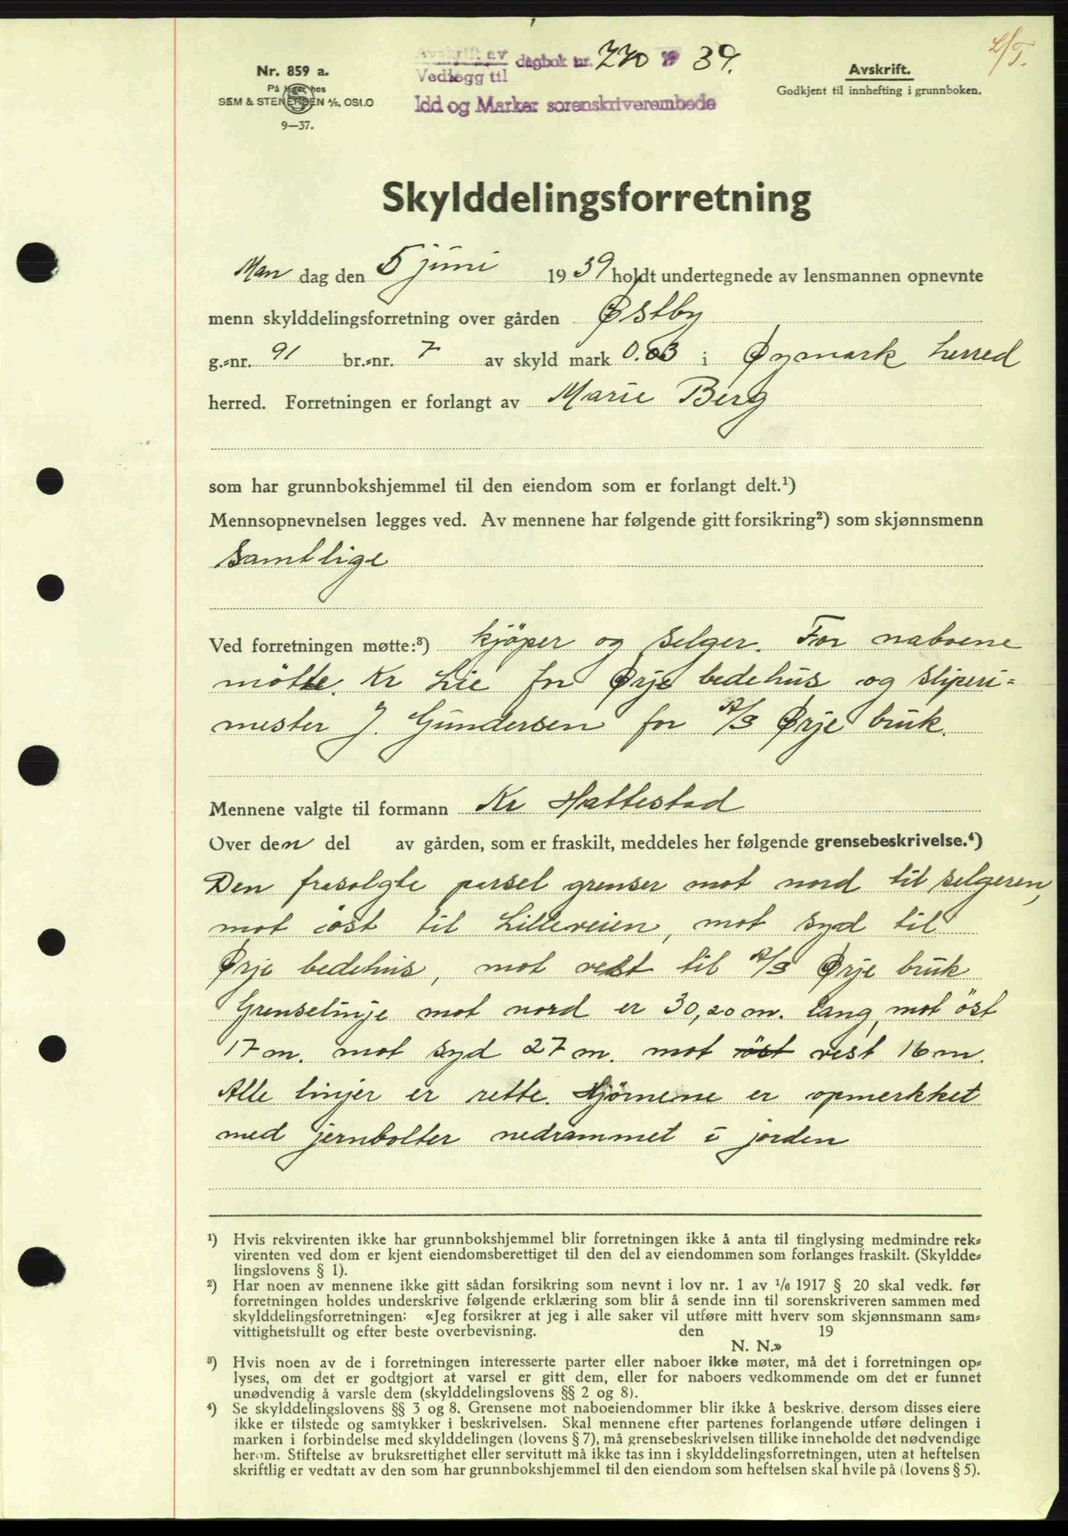 Avskrift av
Vedlegg til
dagbok nr. 770 1939.
Idd og Marker sorenskriverembede
Nr. 859 a.
På lager hos
SEM & STENERSEN A/S, OSLO
9—37.
Avskrift.
Godkjent til innhefting i grunnboken.
Skylddelingsforretning
Man dag den 5 juni 1939 holdt undertegnede av lensmannen opnevnte
menn skylddelingsforretning over gården Østby
g.-nr. 91 br.-nr. 7 av skyld mark 0.83 i Øymark herred
herred. Forretningen er forlangt av Marie Berg
som har grunnbokshjemmel til den eiendom som er forlangt delt.¹)
Mennsopnevnelsen legges ved. Av mennene har følgende gitt forsikring²) som skjønnsmenn
Samtlige
Ved forretningen møtte:³) kjöper og selger. For naboene
mötte. Kr Lie for Ørje bedehus og sliperi-
mester J. Gundersen for A/S Ørje bruk.
Mennene valgte til formann Kr Hattestad
Over den del av gården, som er fraskilt, meddeles her følgende grensebeskrivelse.⁴)
Den frasolgte parsel grenser mot nord til selgeren,
mot öst til Lilleveien, mot syd til
Ørje bedehus, mot vest til A/S Ørje bruk
Grenselinje mot nord er 30,20 m. lang, mot öst
17 m. mot syd 27 m. mot öst vest 16 m.
Alle linjer er rette. Hjörnene er opmerkket
med jernbolter nedrammet i jorden
¹) Hvis rekvirenten ikke har grunnbokshjemmel blir forretningen ikke å anta til tinglysing medmindre rek-
virenten ved dom er kjent eiendomsberettiget til den del av eiendommen som forlanges fraskilt. (Skyldde-
lingslovens § 1).
²) Har noen av mennene ikke gitt sådan forsikring som nevnt i lov nr. 1 av 1/6 1917 § 20 skal vedk. før
forretningen holdes underskrive følgende erklæring som blir å sende inn til sorenskriveren sammen med
skylddelingsforretningen: «Jeg forsikrer at jeg i alle saker vil utføre mitt hverv som skjønnsmann sam-
vittighetsfullt og efter beste overbevisning. den 19
N. N.»
³) Hvis noen av de i forretningen interesserte parter eller naboer ikke møter, må det i forretningen op-
lyses, om det er godtgjort at varsel er gitt dem, eller for naboers vedkommende om det er funnet
unødvendig å varsle dem (skylddelingslovens §§ 2 og 8).
⁴) Se skylddelingslovens §§ 3 og 8. Grensene mot naboeiendommer blir ikke å beskrive, dersom disses eiere
ikke er tilstede og samtykker i beskrivelsen. Skal mennene efter partenes forlangende utføre delingen i
marken i forbindelse med skylddelingen (lovens § 7), må grensebeskrivelsen tillike inneholde det nødvendige
herom. Stiftelse av bruksrettighet eller servitutt må ikke tas inn i skylddelingsforretningen, uten at heftelsen
skriftlig er vedtatt av den som har grunnbokshjemmel til den eiendom som heftelsen skal hvile på (lovens § 5).